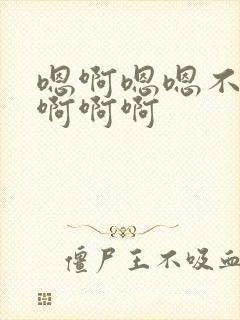 嗯啊嗯嗯不
啊啊啊
僵尸王不吸血